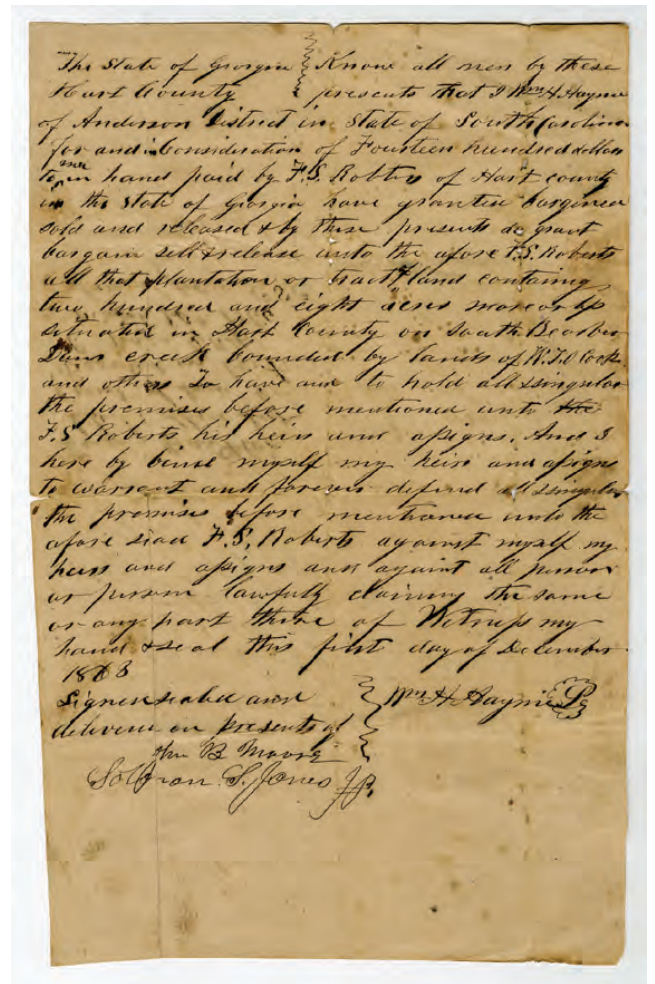 The State of Georgia } Know all men by these
Hart County } presents that I Wm H. Haynie
of Anderson District in State of South Carolina
for and in Consideration of Fourteen hundred dollars
to me in hand paid by F.S. Robters of Hart county
in the State of Georgia have granted bargened
sold and released & by these presents do grant
bargain sell & release unto the afore F.S. Roberts
all that plantation or tract of land containg
two hundred and eight acres more or less
situated in Hart County on South Beaver
Dam creek bounded by lands of W.T.O Cook
and others To have and to hold all & singular
the premises before mentioned unto the
F.S Roberts his heirs and assigns. And I
here by binde myself my heirs and assigns
to warrent and forever defend all & singular
the premises before mentioned unto the
afore siad F.S. Roberts against myself my
heirs and assigns and againt all person
or persons lawfully claiming the same
or any part there of Witness my
hand & seal this first day of December
1863
Signed sealed and } Wm H. Haynie LS
deliverd on presents of
Wm B Moore
S. Jones JP.